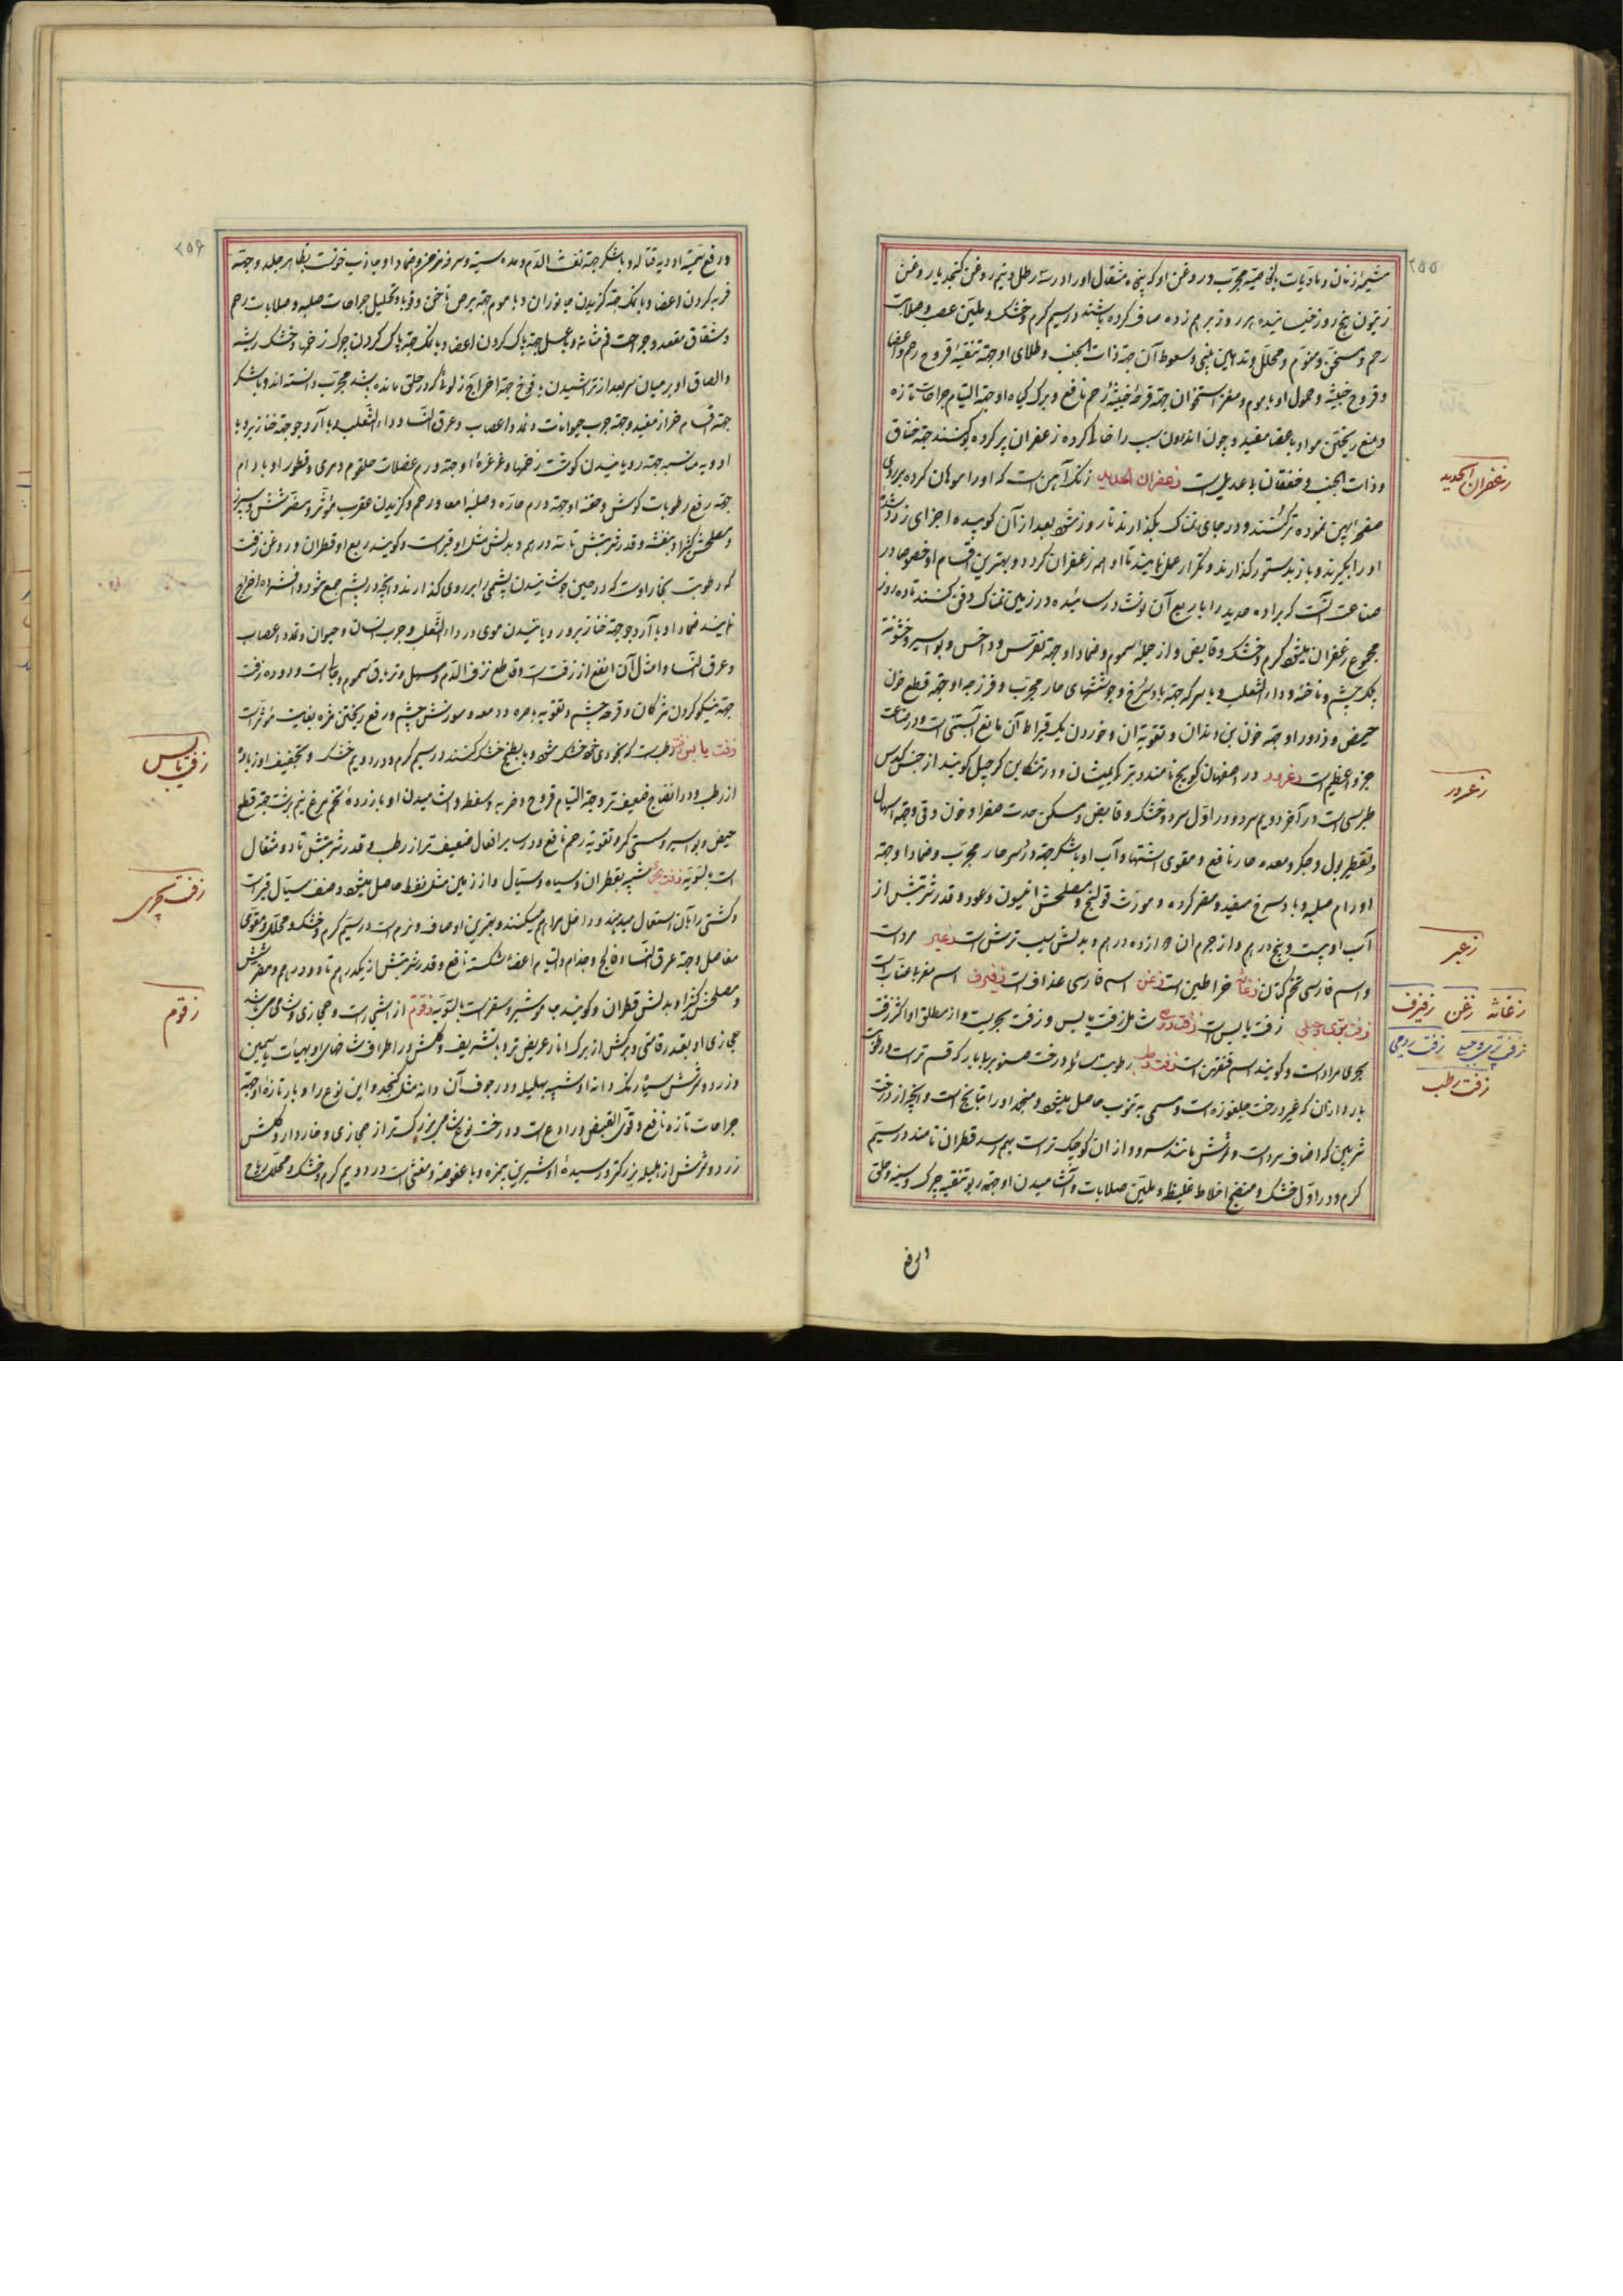 ۲۵۵
مشیمه از زنان و مادیات بالخاصیه مجرب و روغن او که پنج مثقال او را در سه رطل و نیم روغن کنجد یا روغن
زیتون پنج روز خیسانیده هر روز برهم زده صاف کرده باشند در سیم گرم و خشک و ملین عصب و صلابت
رحم و مسخن و منوم و محلل و تدهین بینی و سعوط آن جهة ذات الجنب و طلای او جهة تنقیه قروح رحم و اعضا
و قروح خبیثه و حمول او با موم و مغز استخوان جهة قرحه خبیثه رحم نافع و برک کیاه او جهة التیام جراحات تازه
و منع ریختن مواد باعضا مفید و چون اندرون سیب را خالی کرده زعفران پر کرده بپوشند جهة خناق
و ذات الجنب و خفقان با عدیل است زعفران الحدید زنک آهن است که او را سوهان کرده بر روی
صفحه پهن نموده تر کنند و در جای نمناک بگذارند تا روز شود بعد از آن کوبیده اجزای زرد شده
او را بگیرند و باز بدستور گذارند و تکرار عمل نمایند تا او همه زعفران کردد و بهترین اقسام او خصوصا در
صناعت آنست که براده حدید را با ربع آن نوشادر سائیده در زمین نمناک دفن کنند تا ده روز
مجموع زعفران میشود گرم و خشک و قابض و از جمله سموم و ضماد او جهة نقرس و داخس و بواسیر و خشونة
پلک چشم و ناخنه و داء الثعلب و با سرکه جهة باد سرخ و جوششهای حار مجرب و فرزجه او جهة قطع خون
حیض و ذرور او جهة خون بن دندان و تقویة آن و خوردن یک قیراط آن مانع آبستنی است و در صناعت
جزو اعظم است زعرور در اصفهان کویج نامند و بترکی یمیشان و در تنکابن کرجیل کویند از جنس کندس
طبرسی است در آخر دویم سرد و در اول سرد و خشک و قابض و مسکن حدت صفرا و خون و قی و جهة اسهال
و تقطیر بول و جکر و معده حار نافع و مقوی اشتها و آب او با شکر جهة درد سر حار مجرب و ضماد او جهة
اورام صلبه و باد سرخ مفید و مضر کرده و مورث قولنج و مصلحش انیسون و عود و قدر شربتش از
آب او بیست و پنج درهم و از جرم آن تا زده درهم و بدلش سیب ترش است زعیر مرو است
و اسم فارسی تخم کتان زغاثه خراطین است زغن اسم فارسی عذاف است زفیزف اسم مغربی عناب است
زفت بری و جبلی زفت یابس است زفت رومی شامل زفت یابس و زفت بحریست و از مطلق او اکثر زفت
بحری مراد است و کویند اسم قنقهن است زفت رطب رطوبت سائله درخت صنوبر با بار که قسم تر است و رطوبت
بار دار آن که غیر درخت چلغوزه است و مسمی به تنوب حاصل میشود و منجمد او را تیانج است و آنچه از درخت
شربین که اصناف سرو است و ثمرش مانند سرو و از آن کوچک تر است بهم رسد قطران نامند در سیم
گرم و در اول خشک و منضج اخلاط غلیظ و ملین صلابات و آشامیدن او جهة ربو تنقیه چرک و سینه و حلق
و رفع
زعفران الحدید
زعرور
زعیر
زغاثه زغن زفیزف
زفت بری و جبلی زفت رومی
زفت رطب
۲۵۶
و رفع سمیة ادویه قتاله و با شکر جهة نفث الدم و مده سینه و سرفه مزمن و ضماد او جاذب خونست بظاهر جلد و جهة
فربه کردن اعضا و با نمک جهة گزیدن جانوران و با موم جهة برص ناخن و قوبا و تحلیل جراحات صلبه و صلابات رحم
و شقاق مقعد و جراحت فم مثانه و با عسل جهة پاک کردن اعضا و با نمک جهة پاک کردن چرک زخمها و خشک ریشه
و الصاق او بر میان سر بعد از تراشیدن بافوخ جهة اخراج زلو که در حلق مانده باشد مجرب دانسته اند و با شکر
جهة اقسام خراز مفید و جهة جرب حیوانات و تمدد اعصاب و عرق النسا و داء الثعلب و با آرد جو جهة خنازیر و با
ادویه مناسبه جهة رویانیدن گوشت زخمها و غرغره او جهة ورم عضلات حلقوم و مری و قطور او با روغن بادام
جهة رفع رطوبات گوش و حقنه او جهة ورم حاره و صلبه امعا و رحم و گزیدن عقرب مؤثر و مضر شش و سپرز
و مصلحش کتیرا و بنفشه و قدر شربتش تا سه درهم و بدلش مثل او قیر است و کویند ربع او قطران و روغن زفت
که رطوبت بخار اوست که در حین جوشانیدن پشمی را بر روی گذارند و آنچه در پشم جمع شود و افشرده اخراج
نمایند ضماد او با آرد جو جهة خنازیر و رویانیدن موی در داء الثعلب و جرب انسان و حیوان و تمدد اعصاب
و عرق النسا و امثال آن انفع از زفت است و قاطع نزف الدم و مسهل و تریاق سموم و حیات است و دوده زفت
جهة نیکو کردن مژگان و قرحه چشم و تقویة باصره و دمعه و سوزش چشم و رفع ریختن مژه بغایت مؤثر است
زفت یابس زفت رطب است که بخودی خود خشک شود و یا بطبخ خشک کنند در سیم گرم و در دویم خشک و تجفیف او زیاده
از رطب و در انضاج ضعیف تر و جهة التیام قروح و ضربه و سقطه و آشامیدن او با زرده تخم مرغ نیم برشت جهة قطع
حیض و بواسیر و سستی کمر و تقویة رحم نافع و در سایر افعال ضعیف تر از رطب و قدر شربتش تا دو مثقال
است بالسویه زفت بحری شبیه بقطران و سیاه و سیال و از زمین مثل نفط حاصل میشود و صنف سیال قیر است
و کشتی را بآن استعمال میدهند و داخل مراهم میکنند و بهترین او صاف و نرم است در سیم گرم و خشک و محلل و مقوی
مفاصل و جهة عرق النسا و فالج و جذام و التیام اعضاء شکسته نافع و قدر شربتش از یکدرهم تا دو درهم و مضر شش
و مصلحش کتیرا و بدلش قطران و کویند جاوشیر و سقز است بالسویه زقوم از اشجار است و حجازی و شامی میباشد
حجازی او بقدر قامتی و برکش از برک انار عریض تر و با تشریف و گلش در اطراف شاخهای او بهیأت یاسمین
و زرد و ثمرش سیاه رنگ دانه او شبیه بهلیله و در جوف آن دانه مثل کنجد و این نوع را و بار تازه او جهة
جراحات تازه نافع و قوی القبض و رادع است و درخت نوع شامی بزرگتر از حجازی و خاردار و گلش
زرد و ثمرش از هلیله بزرگتر و رسیده او شیرین بیمزه و با عفوصة و مغثی است در دویم گرم و خشک و محلل ریاح
زفت یابس
زفت بحری
زقوم